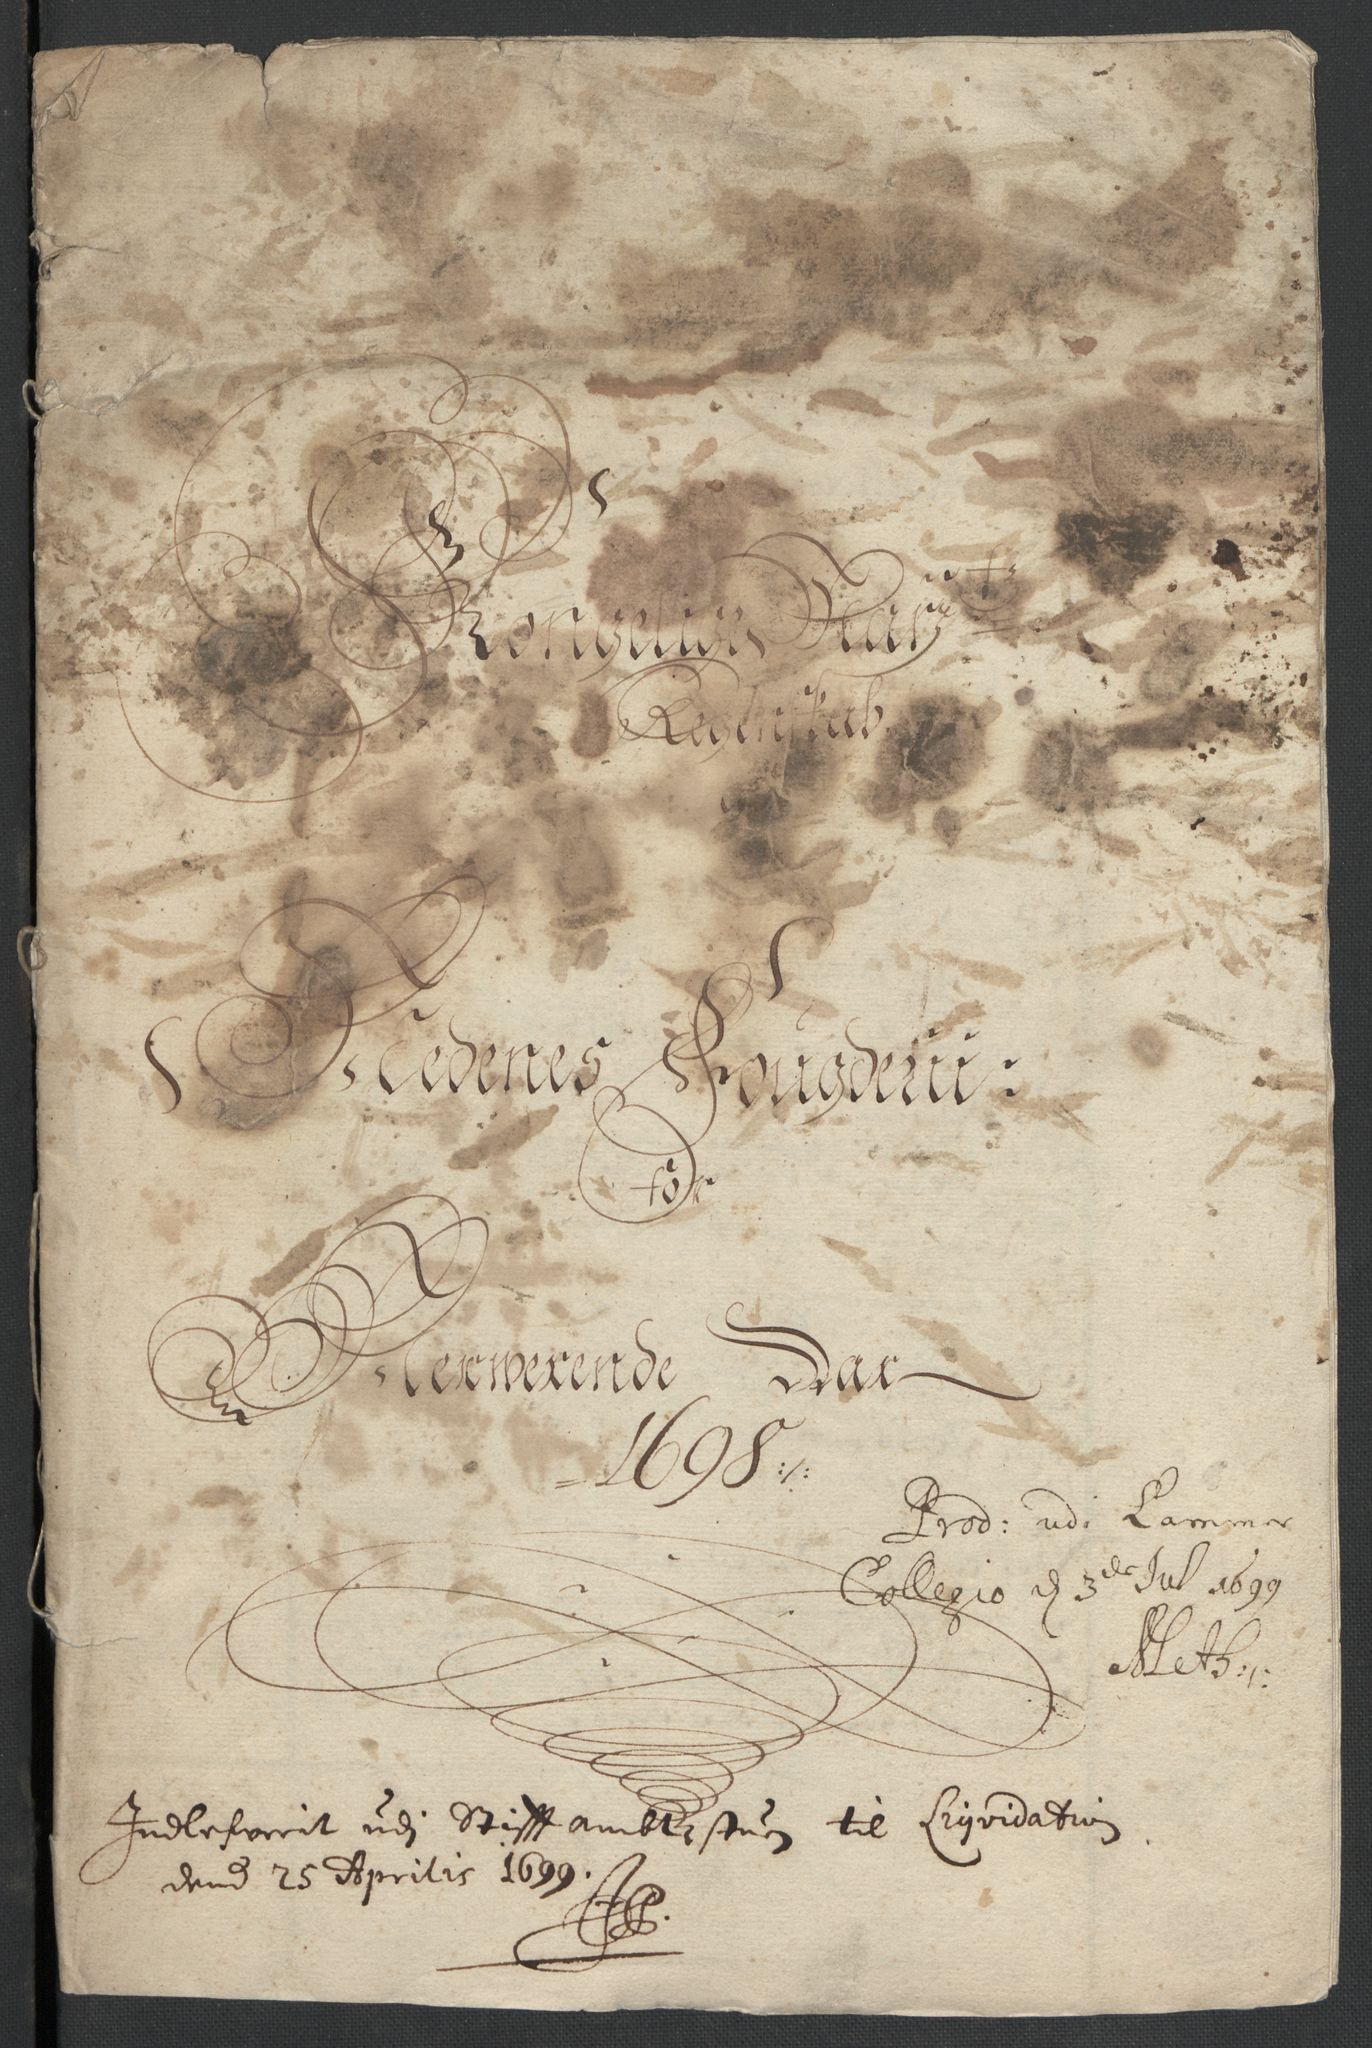 Kongelige May:ts
Regenskab
Nedenes Fougderii:
for
Nerwerende Aar
1698
Prod: udi Cammer
Collegio d 3de Jul 1699
Indlefverit udj Stifftambtstuen til Liqvidation
dend 25 Aprilis 1699.